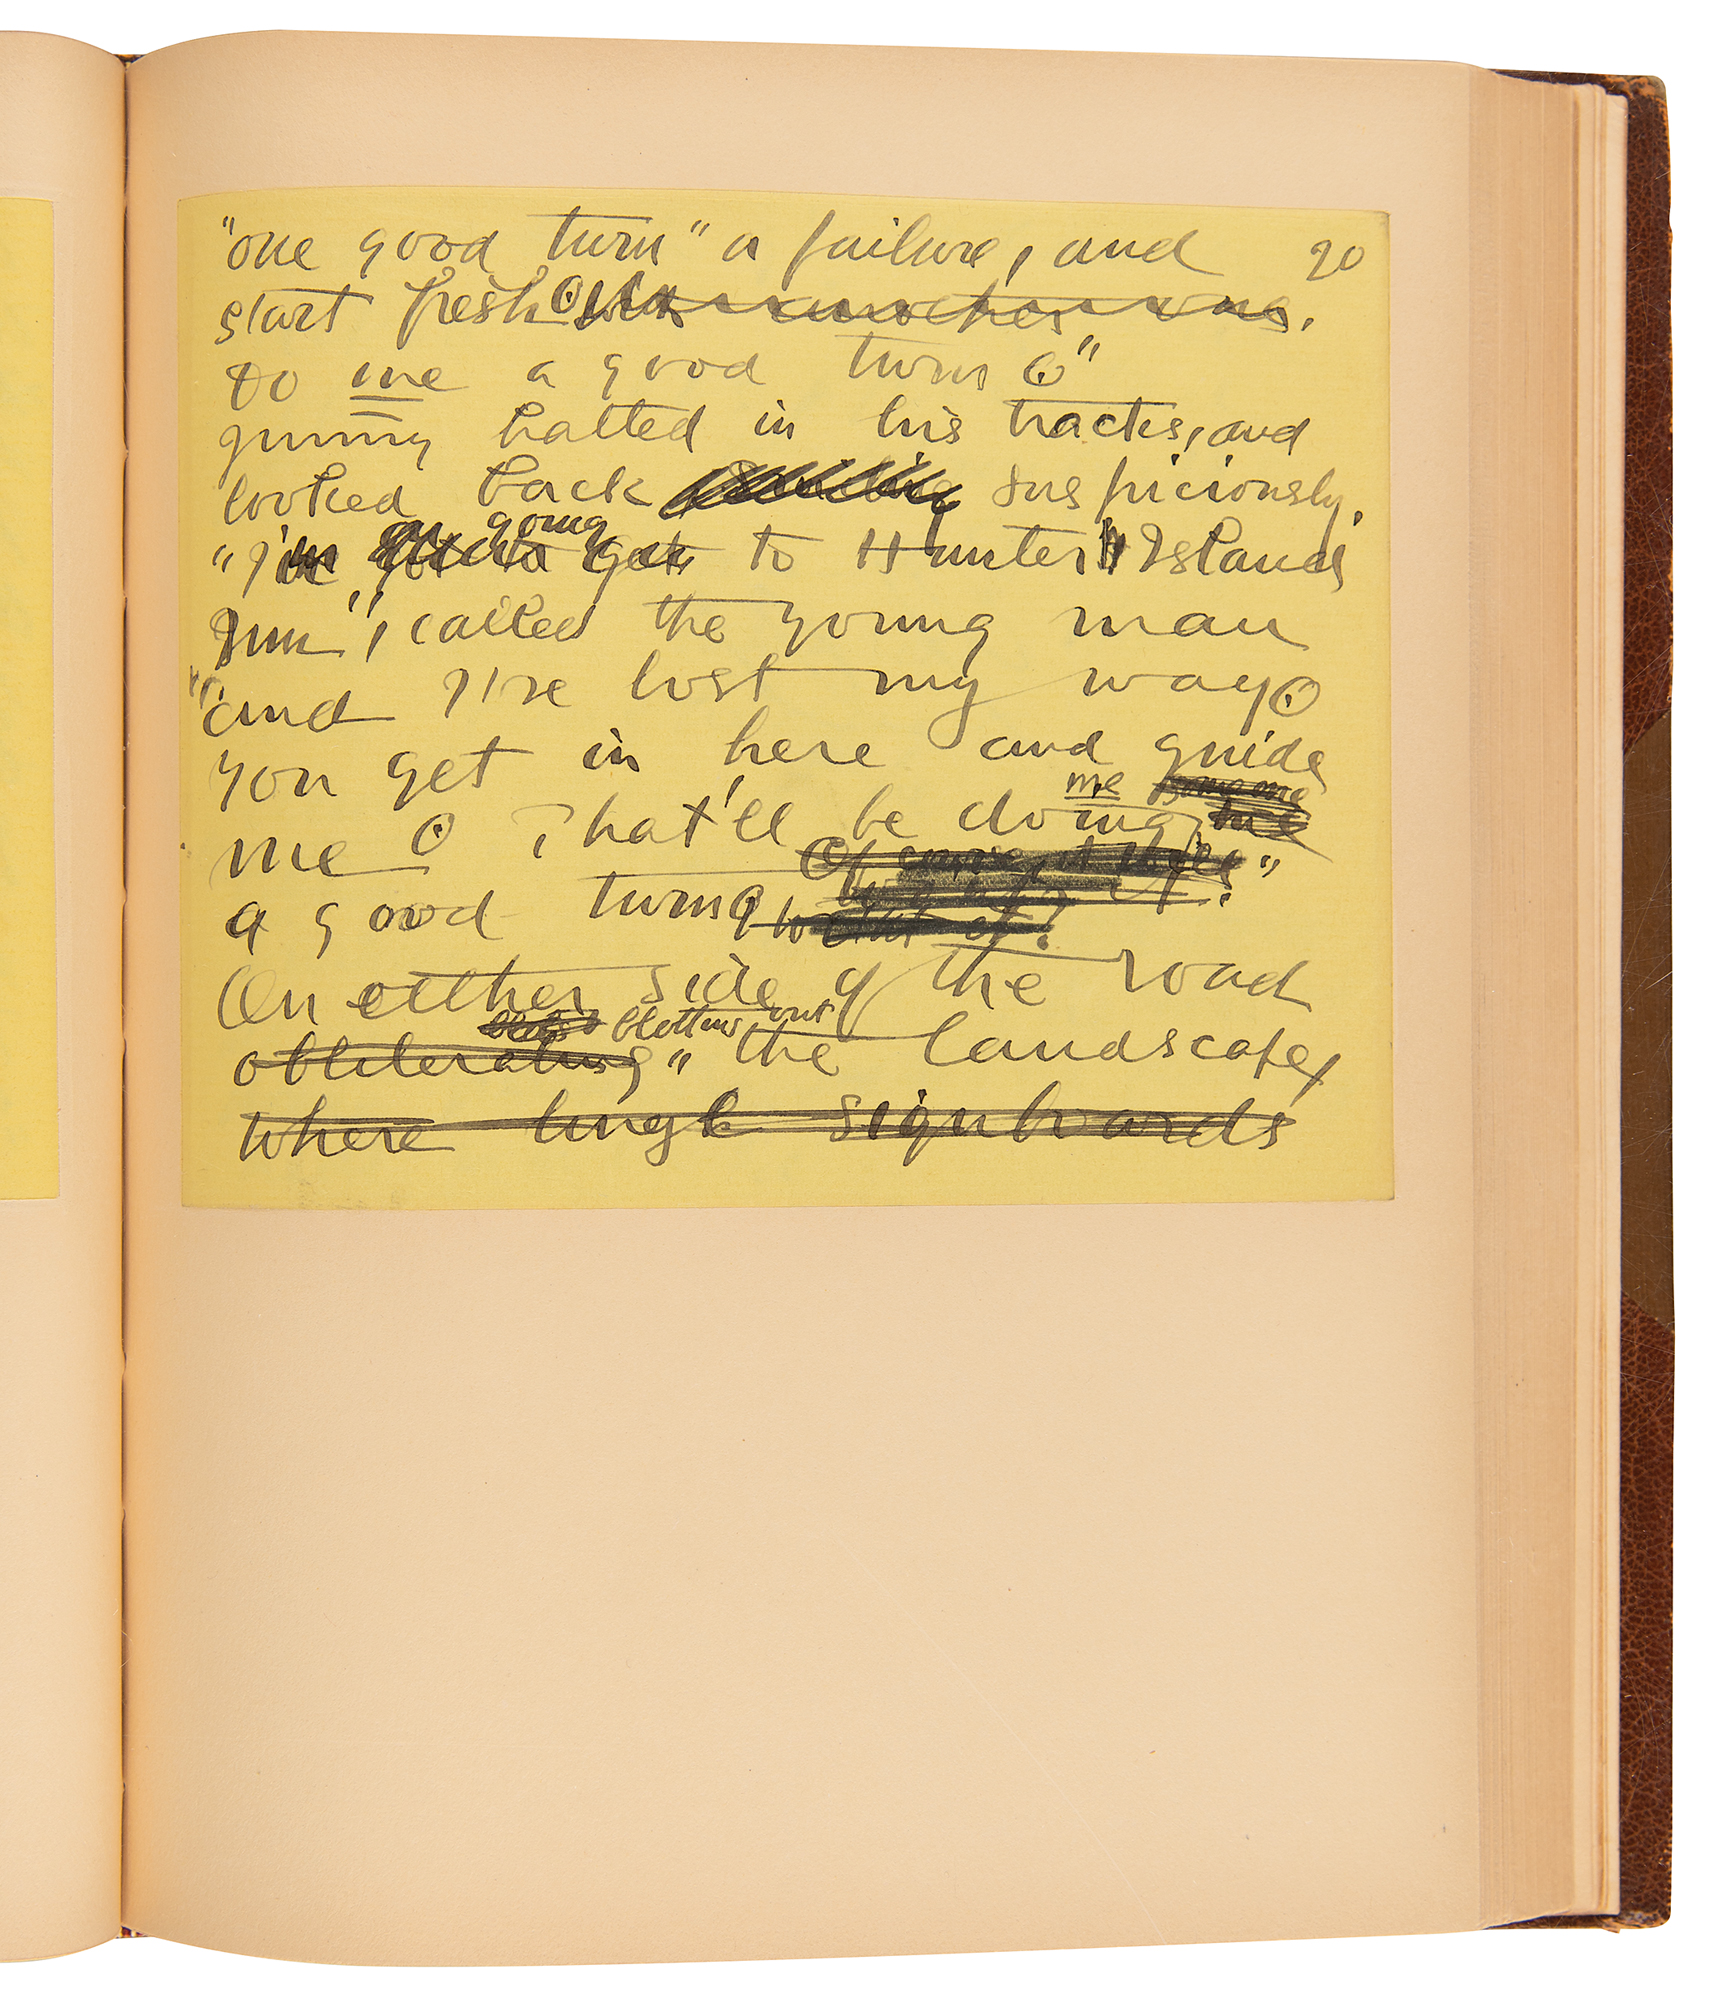 "one good turn" a failure, and 20
start fresh. with another one.
to me a good turn."
Jimmy halted in his tracks, and
looked back smiling suspiciously.
going
"I'm got to get to Hunter's Island
Jim", called the young man
"and I've lost my way.
You get in here and guide
me some one
me. That'll be doing me
Of course, it
a good turn.
what of?
On either side of the road
blotting out
obliterating" the landscape,
where huge signboards